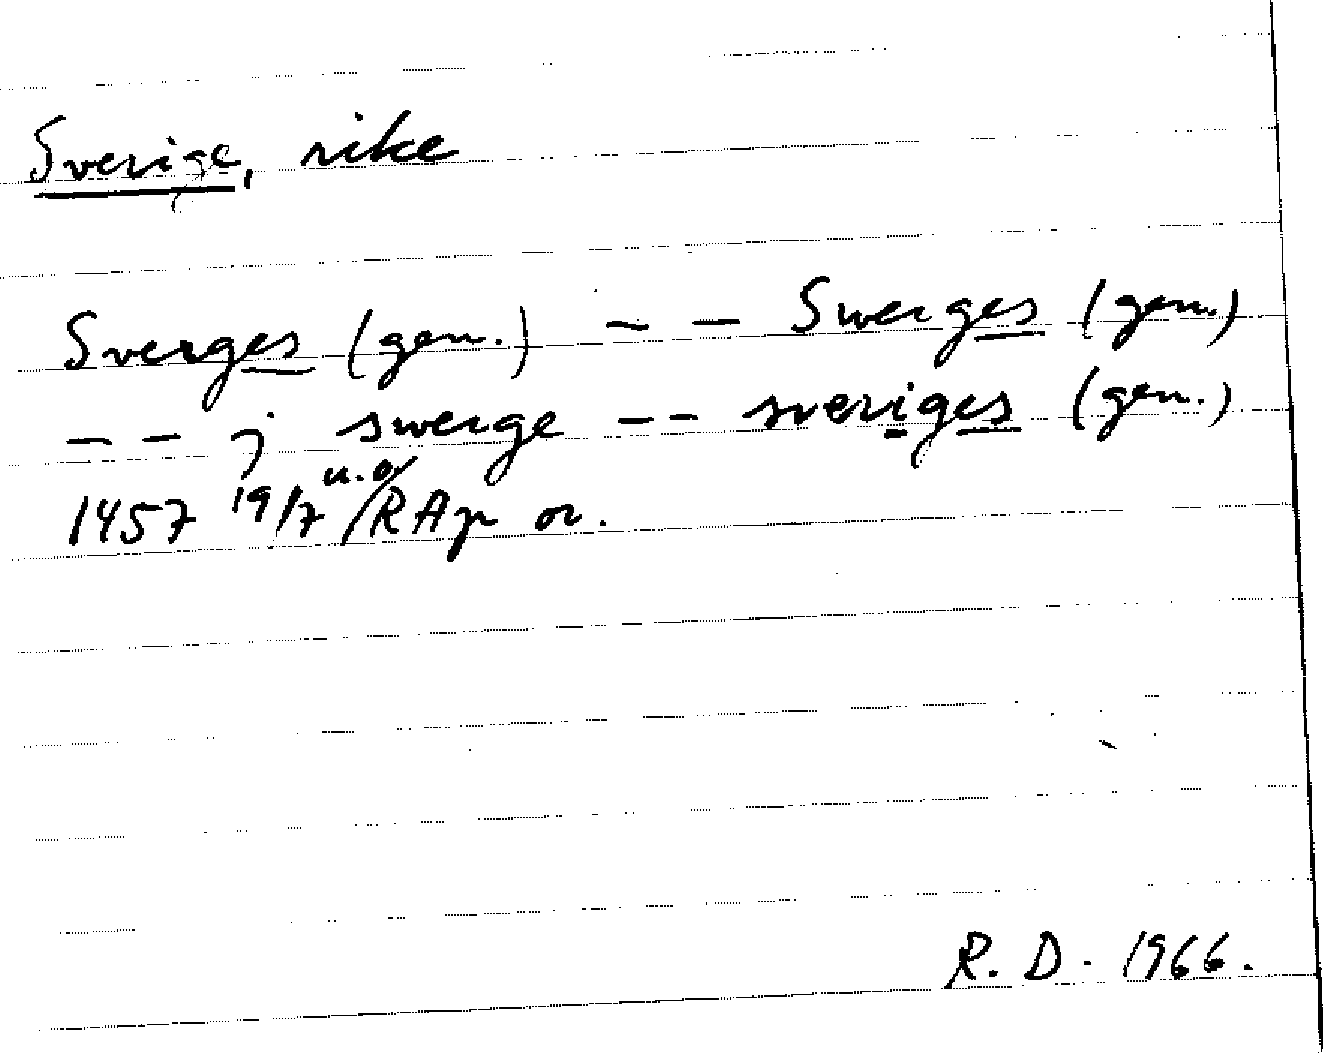 Sverige, rike
Sverges (gen.) – – Swerges (gen.)
– – j swerge – – sveriges (gen.)
1457 19/7 u.o/RAp or.
R. D. 1966.